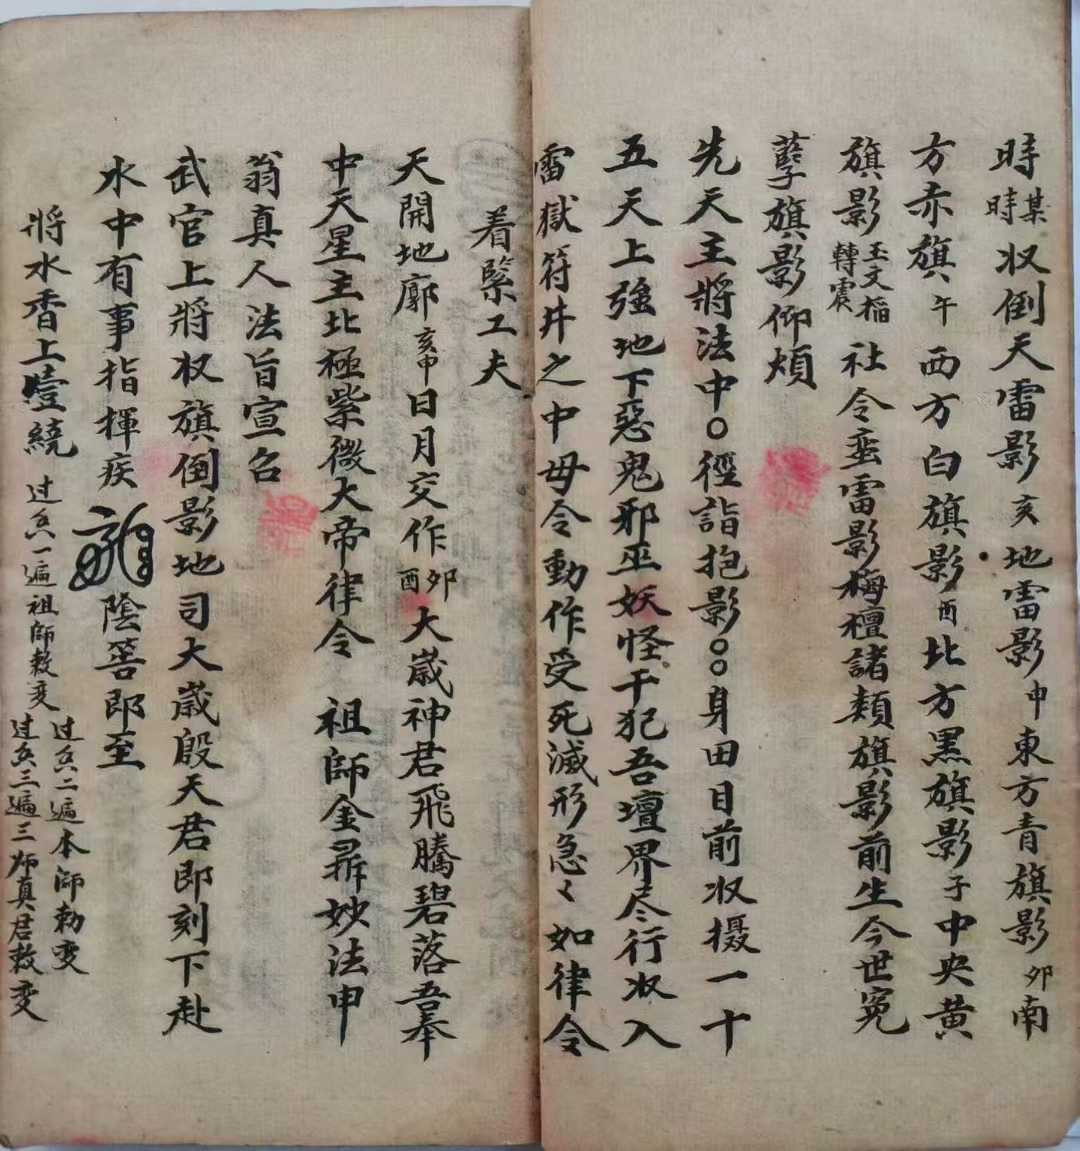 時某時收倒天雷影亥地雷影申東方青旗影卯南
方赤旗午西方白旗影酉北方黑旗影子中央黃
旗影玉文稲轉震社令蛮雷影梅檀諸類旗影前生今世冤
孽旗影仰煩
先天主將法中〇徑詣抱影〇〇身田日前收摄一十
五天上強地下惡鬼邪巫妖怪干犯吾壇界尽行收入
雷獄符井之中毋令動作受死滅形急〻如律令
着緊工夫
天開地廓亥申日月交作卯酉大歲神君飛騰碧落吾奉
中天星主北極紫微大帝律令 祖師金鼎妙法申
翁真人法旨宣召
武官上將收旗倒影地司大歲殷天君即刻下赴
水中有事指揮疾陰笤即至
將水香上壹繞 过⺽一遍祖師敕变
过⺽二遍本師勅变
过⺽三遍三师真君敕变